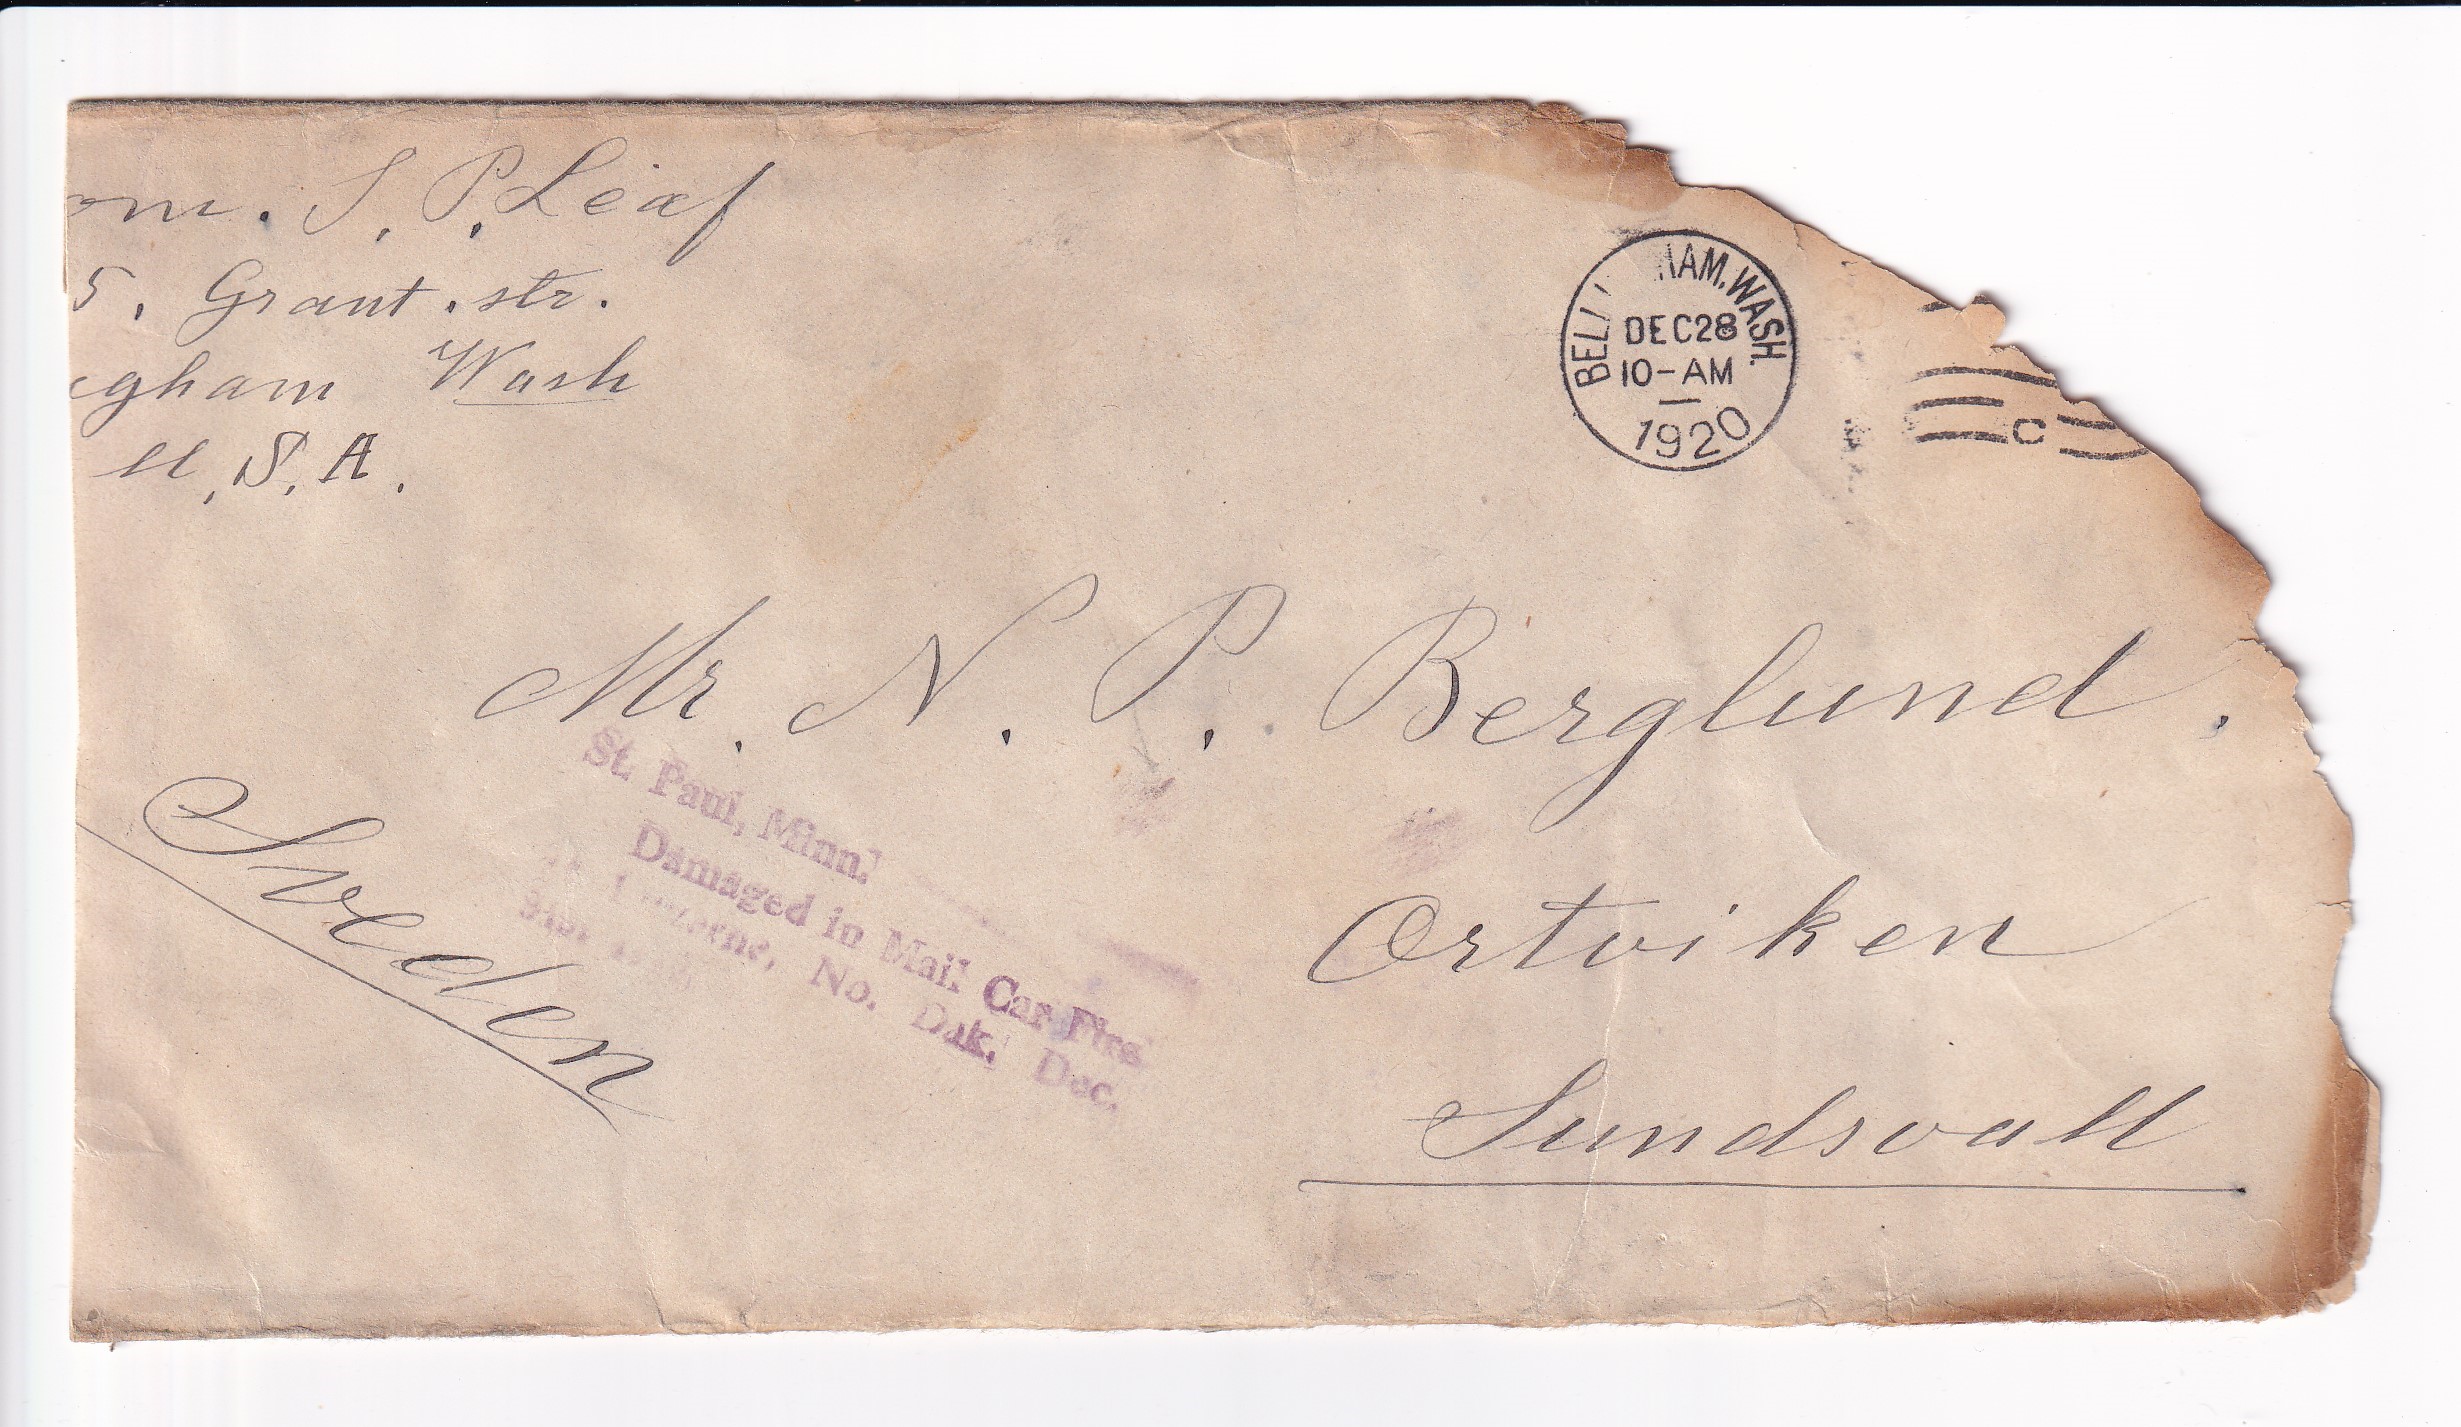 om. S. P. Leaf
5, Grant. str.
gham Wash
U, S, A.
HAM. WASH.
DEC 28
10-AM
1920
C
Mr. N. P. Berglund.
Ortviken
Sundsvall
Sveden
St. Paul, Minn.
Damaged in Mail Car Fire
No. Dak. Dec.